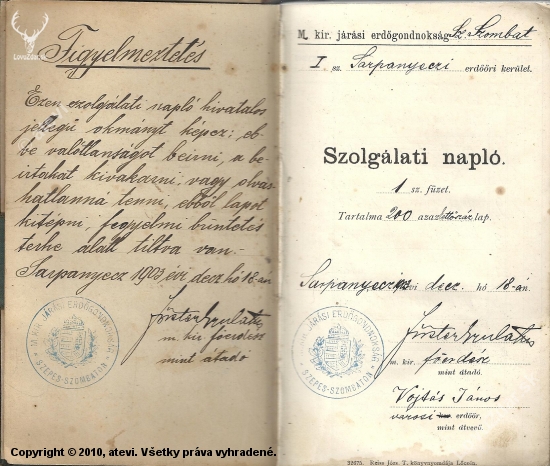 Figyelmeztetés
Ezen szolgálati napló hivatalos
jellegü okmányt képez; eb-
be valótlanságot beirni, a be-
irtakat kivakarni, vagy olvas-
hatlanna tenni, ebből lapot
kitépni, fegyelmi büntetés
terhe alatt tiltva van-
Sarpanyecz 1903 évi decz hó 18-án
Förster Gyula
m. kir főerdész
mint átadó
M. KIR. JÁRÁSI ERDŐGONDNOKSÁG
SZEPES-SZOMBATON
M. kir. járási erdőgondnokság Sz. Szombat
I sz. Sarpanyeczi erdőőri kerület.
Szolgálati napló.
1 sz. füzet.
Tartalma 200 azaz kettőszáz lap.
Sarpanyecz évi decz. hó 18-án.
Förster Gyula
m. kir. főerdész
mint átadó.
M. KIR. JÁRÁSI ERDŐGONDNOKSÁG
SZEPES-SZOMBATON
Vojtás János
városi erdőőr,
mint átvevő.
32675. Reiss Józs. T. könyvnyomdája Lőcsén.
Copyright © 2010, atevi. Všetky práva vyhradené.